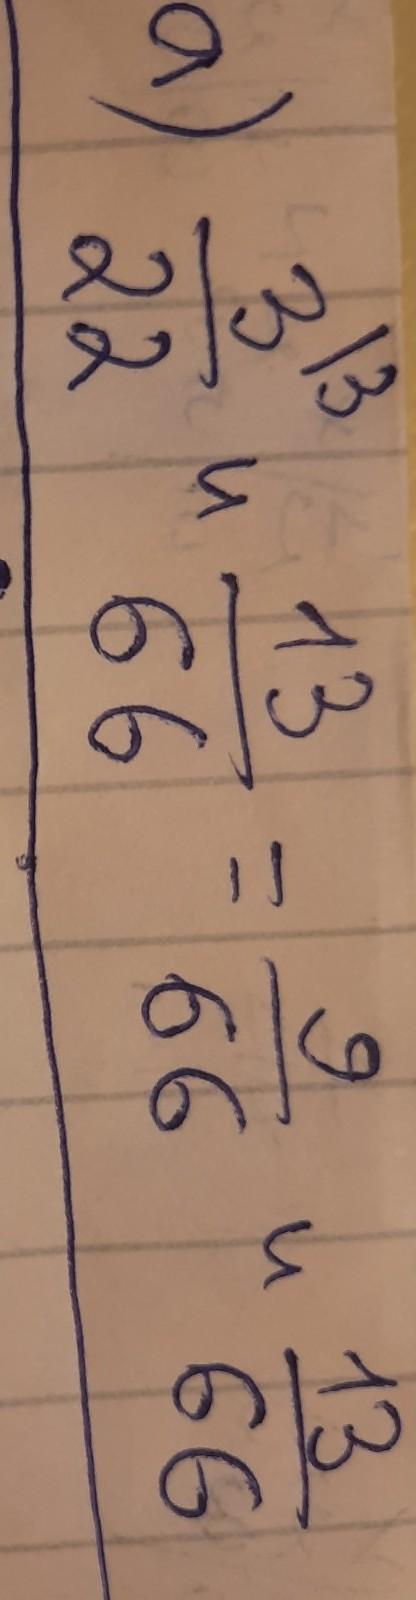 а) 3/22 \3 и 13/66 = 9/66 и 13/66